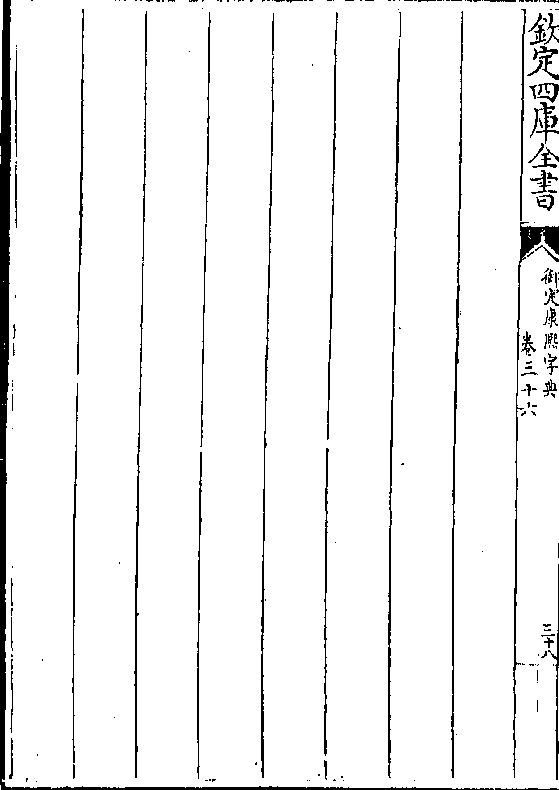 欽定四庫全書
御定康熙字典
卷三十六
三十八